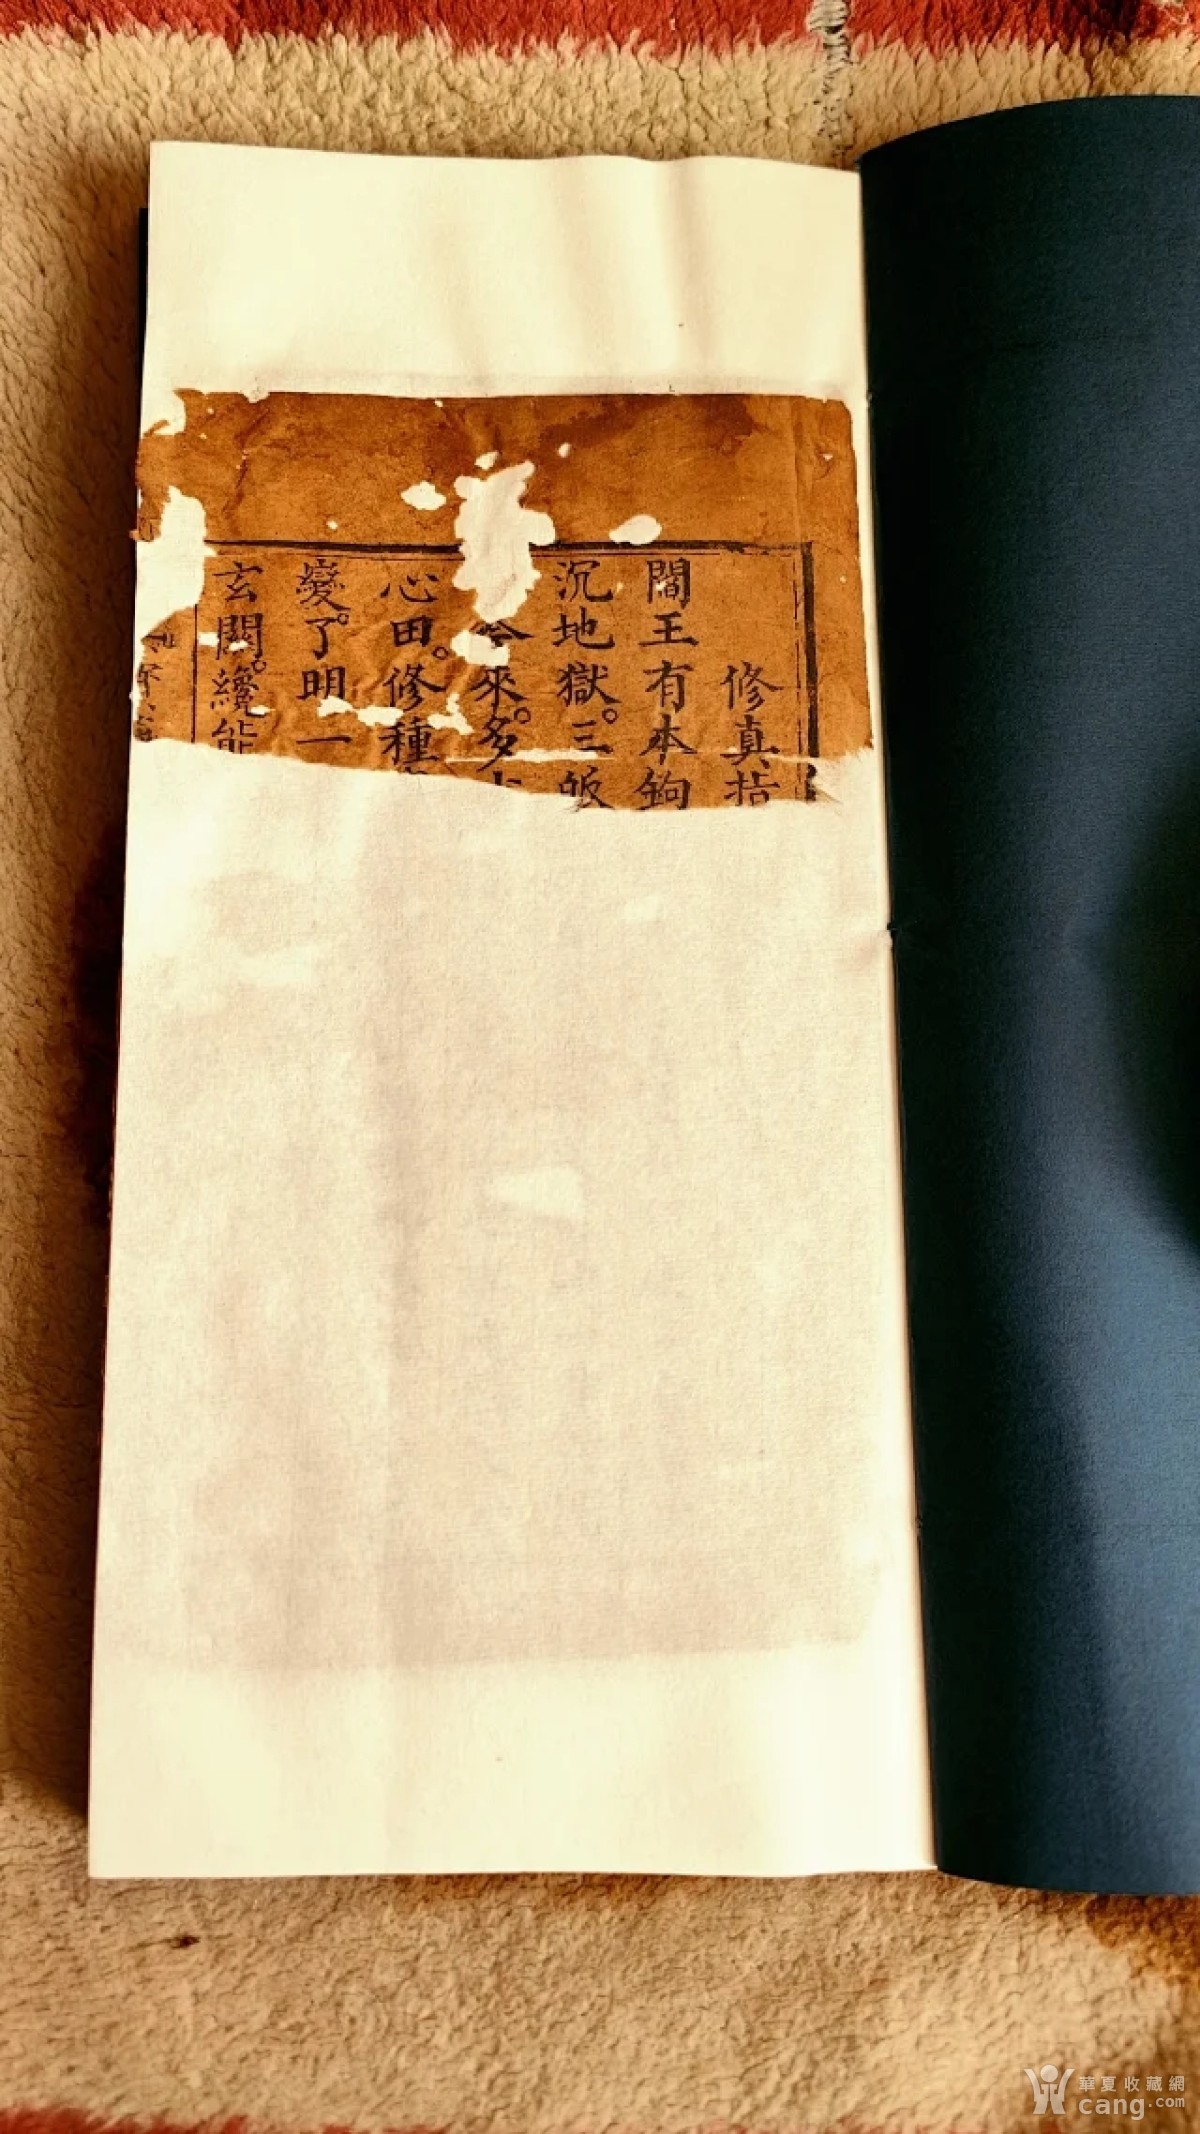 修真指
閻王有本鉤
沉地獄。三皈
今來。多
心田。修種
變。了明一
玄關。纔能
華夏收藏網
cang.com